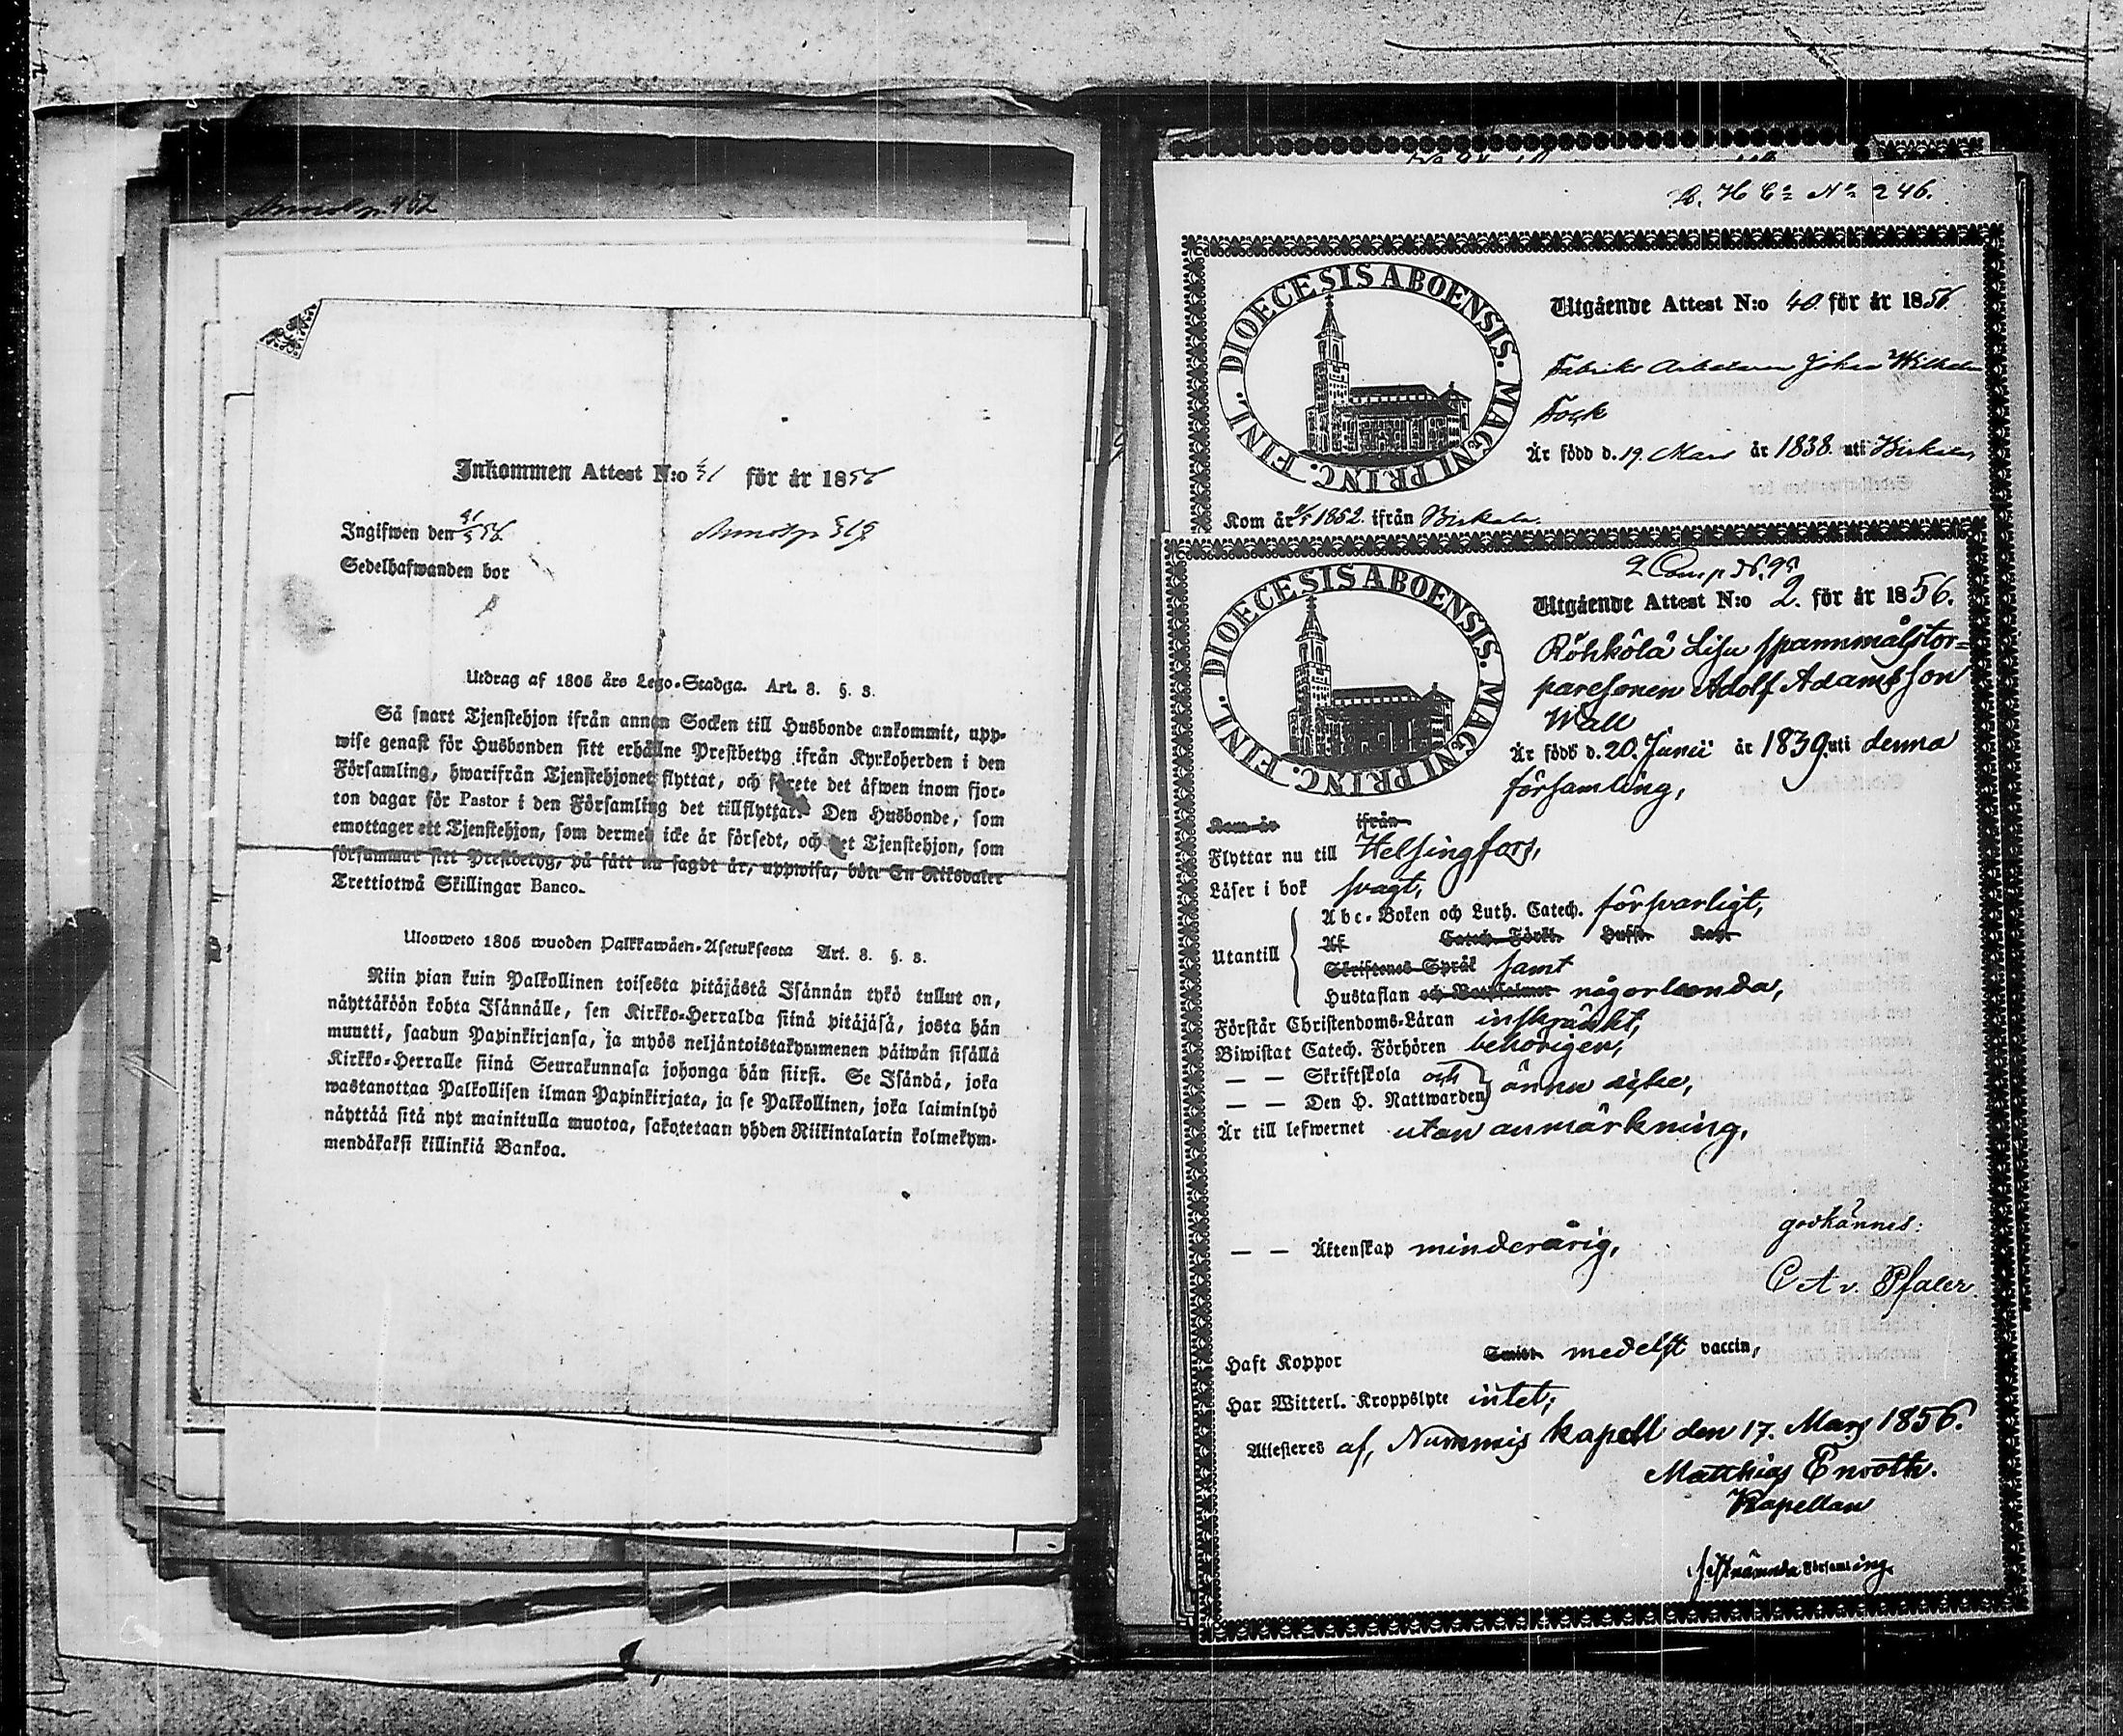 Inkommen Attest N:o för år 1856
Ingifwen den
Sedelhafwanden bor
Utdrag af 1805 års Lego-Stadga. Art. 8. §. 8.
Så snart Tjenstehjon ifrån annan Socken till Husbonde ankommit, upp-
wise genast för Husbonden sitt erhållne Prestbetyg ifrån Kyrkoherden i den
Församling, hwarifrån Tjenstehjonet flyttat, och förete det äfwen inom fjor-
ton dagar för Pastor i den Församling det tillflyttat. Den Husbonde, som
emottager ett Tjenstehjon, som dermed icke är försedt, och det Tjenstehjon, som
försummar sitt Prestbetyg, på sätt nu sagdt är, uppwisa, böte En Riksdaler
Trettiotwå Skillingar Banco.
Ulosweto 1805 wuoden Palkkawäen-Asetuksesta Art. 8. §. 8.
Niin pian kuin Palkollinen toisesta pitäjästä Isännän tykö tullut on,
näyttäköön kohta Isännälle, sen Kirkko-Herralda siinä pitäjäsä, josta hän
muutti, saadun Papinkirjansa, ja myös neljäntoistakymmenen päiwän sisällä
Kirkko-Herralle siinä Seurakunnasa johonga hän siirsi. Se Isändä, joka
wastanottaa Palkollisen ilman Papinkirjata, ja se Palkollinen, joka laiminlyö
näyttää sitä nyt mainitulla muotoa, sakotetaan yhden Riikintalarin kolmekym-
mendäkaksi killinkiä Bankoa.
N:o 246.
DIOECESIS ABOENSIS. MAGNI PRINC. FINL.
Utgående Attest N:o 40 för år 1856
Fabriks Arbetaren Johan Wilhelm
Fock
Är född d. 19 Mars år 1838 uti Birkala
Kom år 1852 ifrån Birkala.
2 Comp N. 95
DIOECESIS ABOENSIS. MAGNI PRINC. FINL.
Utgående Attest N:o 2. för år 1856.
Röhkölä Lisu spannmålstor-
paresonen Adolf Adamsson
Wall
Är född d. 20. Junii år 1839. uti denna
församling,
Kom år ifrån
Flyttar nu till Helsingfors,
Läser i bok svagt,
Utantill
Abc-Boken och Luth. Catech. försvarligt,
Af Catech. Förkl. Hufst. Kap.
Skriftenes Språk samt
Hustaflan och Botpsalmer någorlunda,
Förstår Christendoms-Läran inskränkt,
Biwistat Catech. Förhören behörigen,
— — Skriftskola och
— — Den H. Nattwarden ännu icke,
Är till lefwernet utan anmärkning,
godkännes:
— — Äktenskap minderårig,
C A v. Pfaler
Haft Koppor Smitt. medelst vaccin,
Har Witterl. Kroppslyte intet;
Attesteres af, Nummis kapell den 17. Mars 1856.
Matthias Enroth.
Kapellan